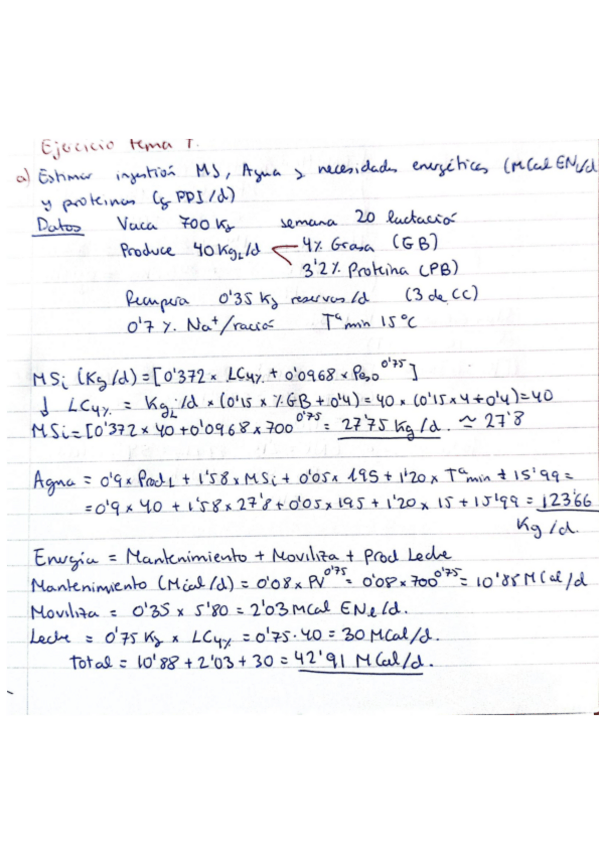 Ejercicio tema 7.
a) Estimar ingestión MS, Agua y necesidades energéticas (MCal ENl/d
y proteínas (g PDI/d)
Datos Vaca 700 Kg semana 20 lactación
Produce 40 KgL/d 4% Grasa (GB)
3'2% Proteina (PB)
Recupera 0'35 Kg reservas/d (3 de CC)
0'7 % Na+/ración Tª min 15ºC
MSi (Kg/d) = [0'372 x LC4% + 0'0968 x Peso^0'75]
↓ LC4% = KgL/d x (0'15 x %GB + 0'4) = 40 x (0'15 x 4 + 0'4) = 40
MSi = [0'372 x 40 + 0'0968 x 700^0'75 = 27'75 Kg/d. ≃ 27'8
Agua = 0'9 x ProdL + 1'58 x MSi + 0'05 x 195 + 1'20 x Tª min + 15'99 =
= 0'9 x 40 + 1'58 x 27'8 + 0'05 x 195 + 1'20 x 15 + 15'99 = 123'66
Kg/d.
Energía = Mantenimiento + Moviliza + Prod Leche
Mantenimiento (Mcal/d) = 0'08 x PV^0'75 = 0'08 x 700^0'75 = 10'88 MCal/d
Moviliza = 0'35 x 5'80 = 2'03 MCal ENl/d.
Leche = 0'75 Kg x LC4% = 0'75 · 40 = 30 MCal/d.
Total = 10'88 + 2'03 + 30 = 42'91 MCal/d.